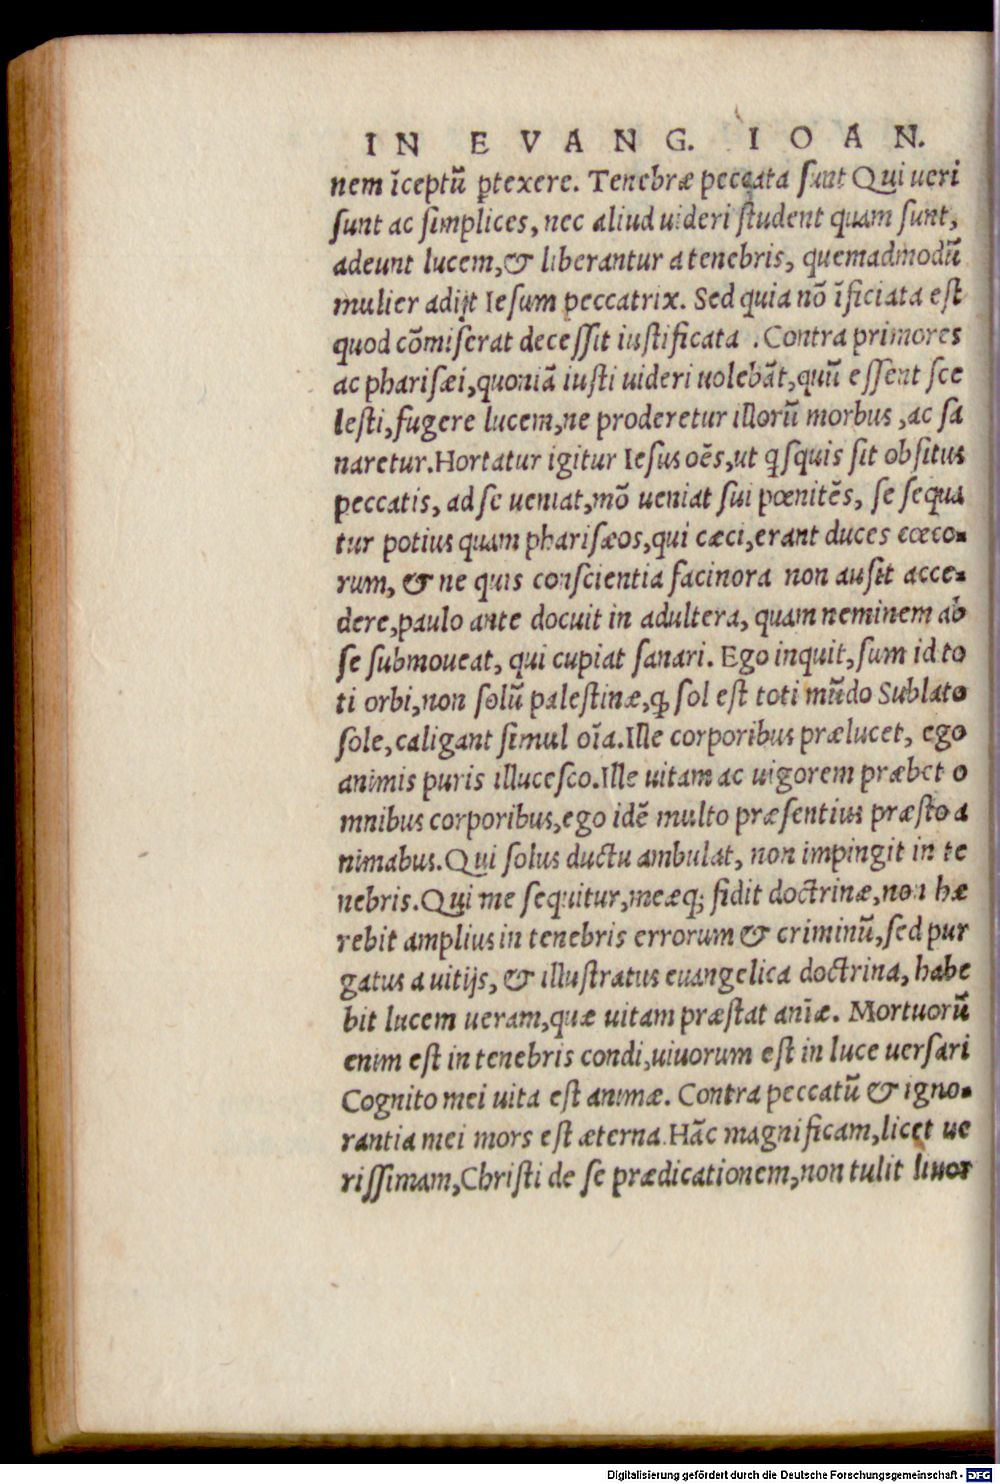 IN EVANG. IOAN.
nem īceptũ ꝑtexere. Tenebræ peccata sunt Qui ueri
sunt ac simplices, nec aliud uideri student quam sunt,
adeunt lucem, & liberantur a tenebris, quemadmodũ
mulier adijt Iesum peccatrix. Sed quia nõ īficiata est
quod cõmiserat decessit iustificata . Contra primores
ac pharisæi, quoniã iusti uideri uolebãt, quũ essent sce
lesti, fugere lucem, ne proderetur illorũ morbus , ac sa
naretur. Hortatur igitur Iesus oẽs, ut qsquis sit obsitus
peccatis, ad se ueniat, mõ ueniat sui pœnitẽs, se sequa
tur potius quam pharisæos, qui cæci, erant duces cœco-
rum, & ne quis conscientia facinora non ausit acce-
dere, paulo ante docuit in adultera, quam neminem ab
se submoueat, qui cupiat sanari. Ego inquit, sum id to
ti orbi, non solũ palestinæ, ꝙ sol est toti mũdo Sublato
sole, caligant simul oīa. Ille corporibus prælucet, ego
animis puris illucesco. Ille uitam ac uigorem præbet o
mnibus corporibus, ego idẽ multo præsentius præsto a
nimabus. Qui solus ductu ambulat, non impingit in te
nebris. Qui me sequitur, meæq; fidit doctrinæ, non hæ
rebit amplius in tenebris errorum & criminũ, sed pur
gatus a uitijs, & illustratus euangelica doctrina, habe
bit lucem ueram, quæ uitam præstat anīæ. Mortuorũ
enim est in tenebris condi, uiuorum est in luce uersari
Cognito mei uita est animæ. Contra peccatũ & igno-
rantia mei mors est æterna. Hãc magnificam, licet ue
rissimam, Christi de se prædicationem, non tulit liuor
Digitalisierung gefördert durch die Deutsche Forschungsgemeinschaft - DFG